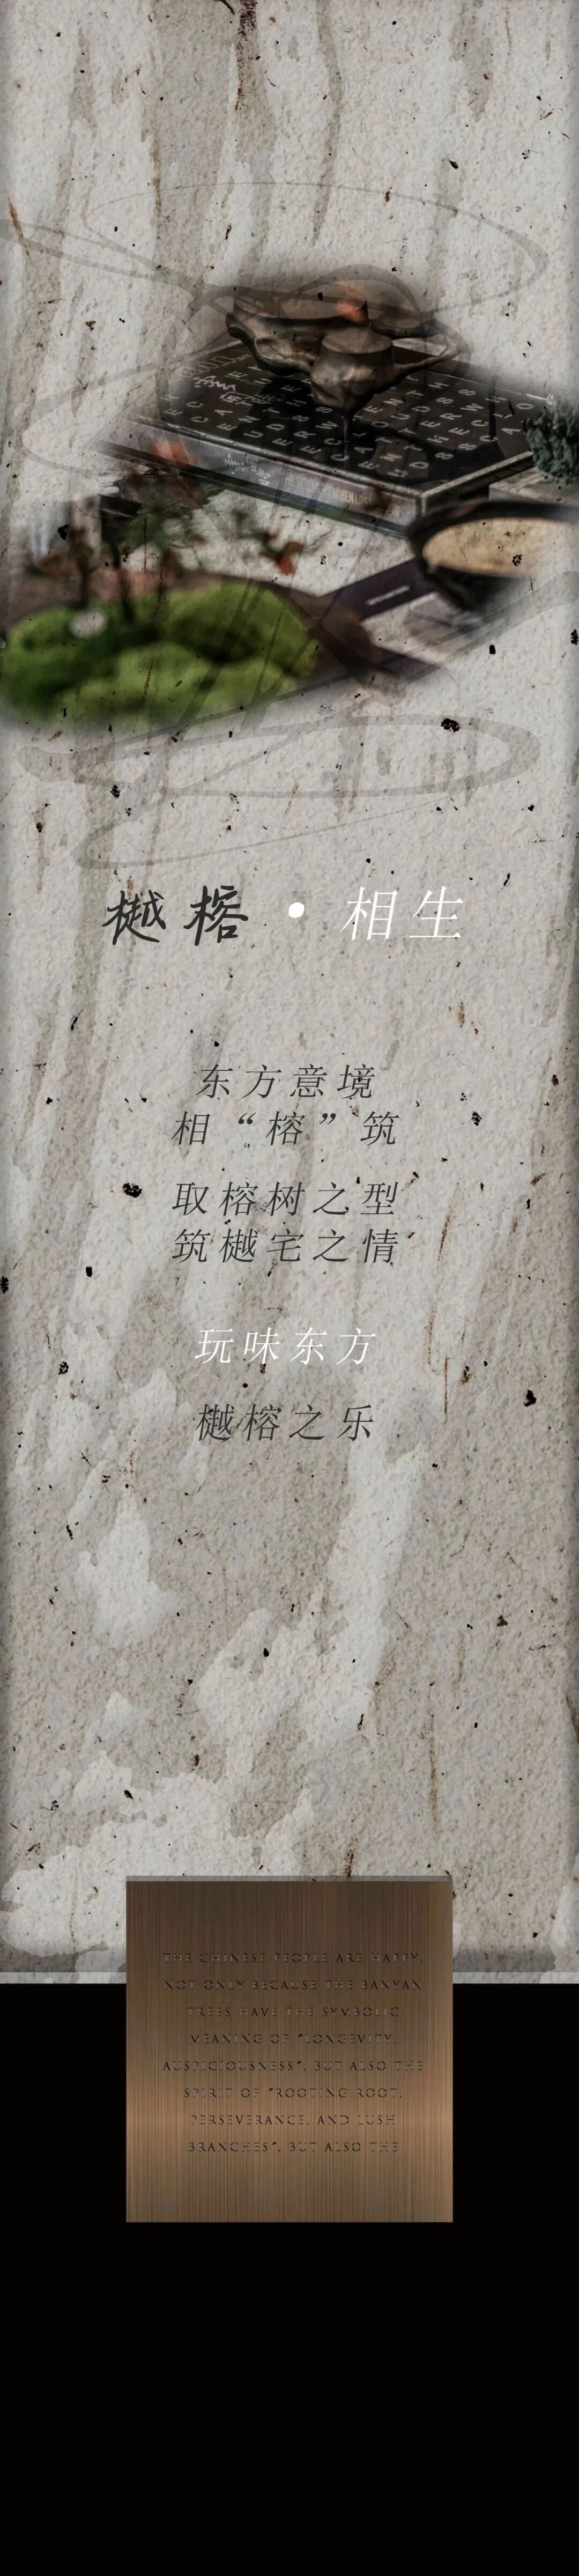 樾榕 · 相生
东方意境
相“榕”筑
取榕树之型
筑樾宅之情
玩味东方
樾榕之乐
THE CHINESE PEOPLE ARE HAPPY,
NOT ONLY BECAUSE THE BANYAN
TREES HAVE THE SYMBOLIC
MEANING OF "LONGEVITY,
AUSPICIOUSNESS", BUT ALSO THE
SPIRIT OF "ROOTING ROOT,
PERSEVERANCE, AND LUSH
BRANCHES", BUT ALSO THE